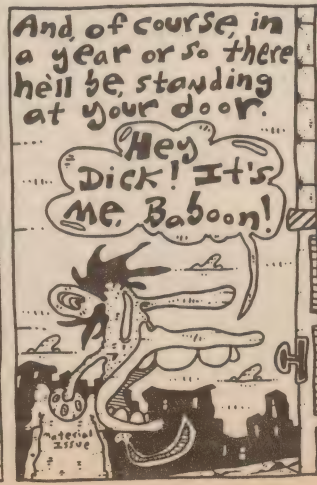 And, of course, in
a year or so there
he'll be, standing
at your door.
Hey
Dick! It's
me, Baboon!
material
Issue